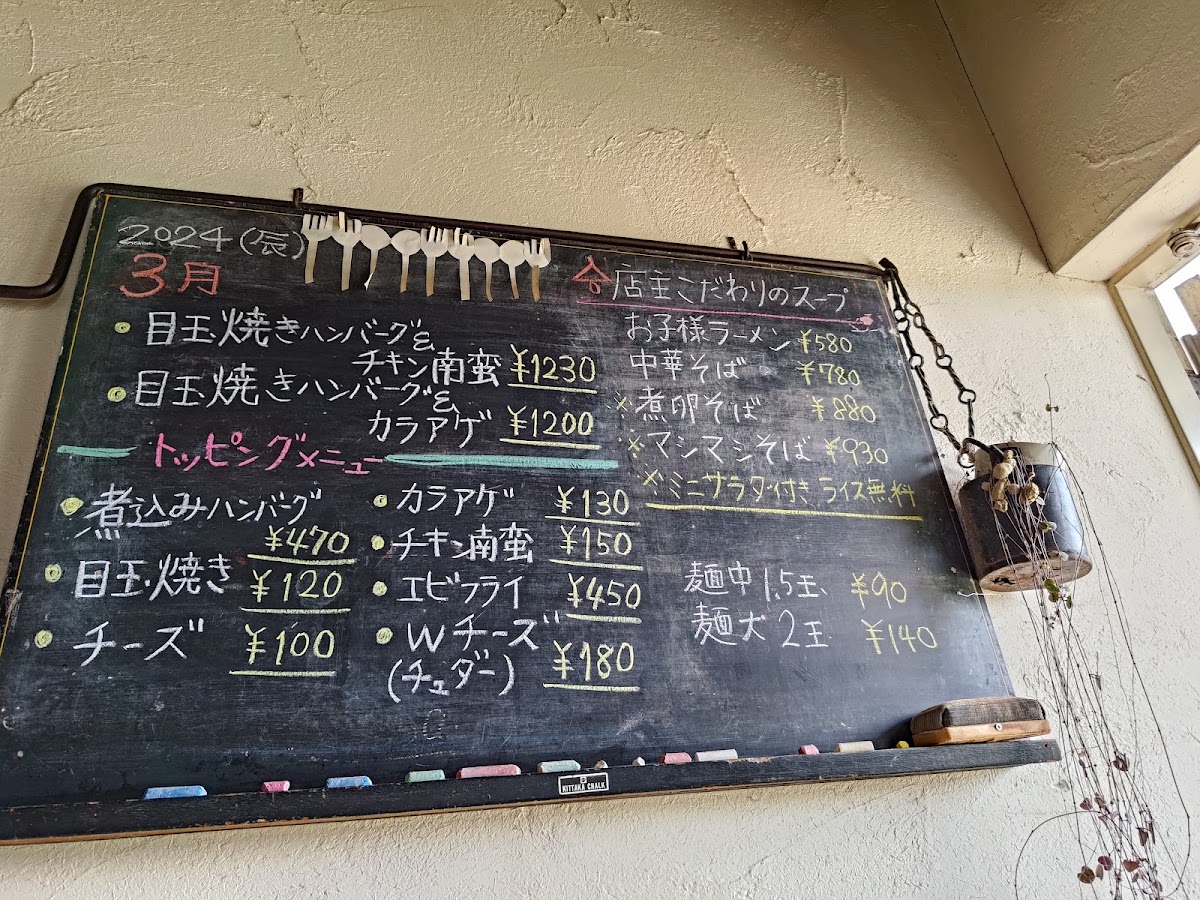 2024(辰)
3月
目玉焼きハンバーグ&
チキン南蛮 ¥1230
目玉焼きハンバーグ&
カラアゲ ¥1200
トッピングメニュー
煮込みハンバーグ
¥470
目玉焼き ¥120
チーズ ¥100
カラアゲ ¥130
チキン南蛮 ¥150
エビフライ ¥450
Wチーズ
(チェダー) ¥180
店主こだわりのスープ
お子様ラーメン ¥580
中華そば ¥780
※煮卵そば ¥880
※マシマシそば ¥930
※ミニサラダ付き ライス無料
麺中 1.5玉 ¥90
麺大 2玉 ¥140
KITPAKA CHALK